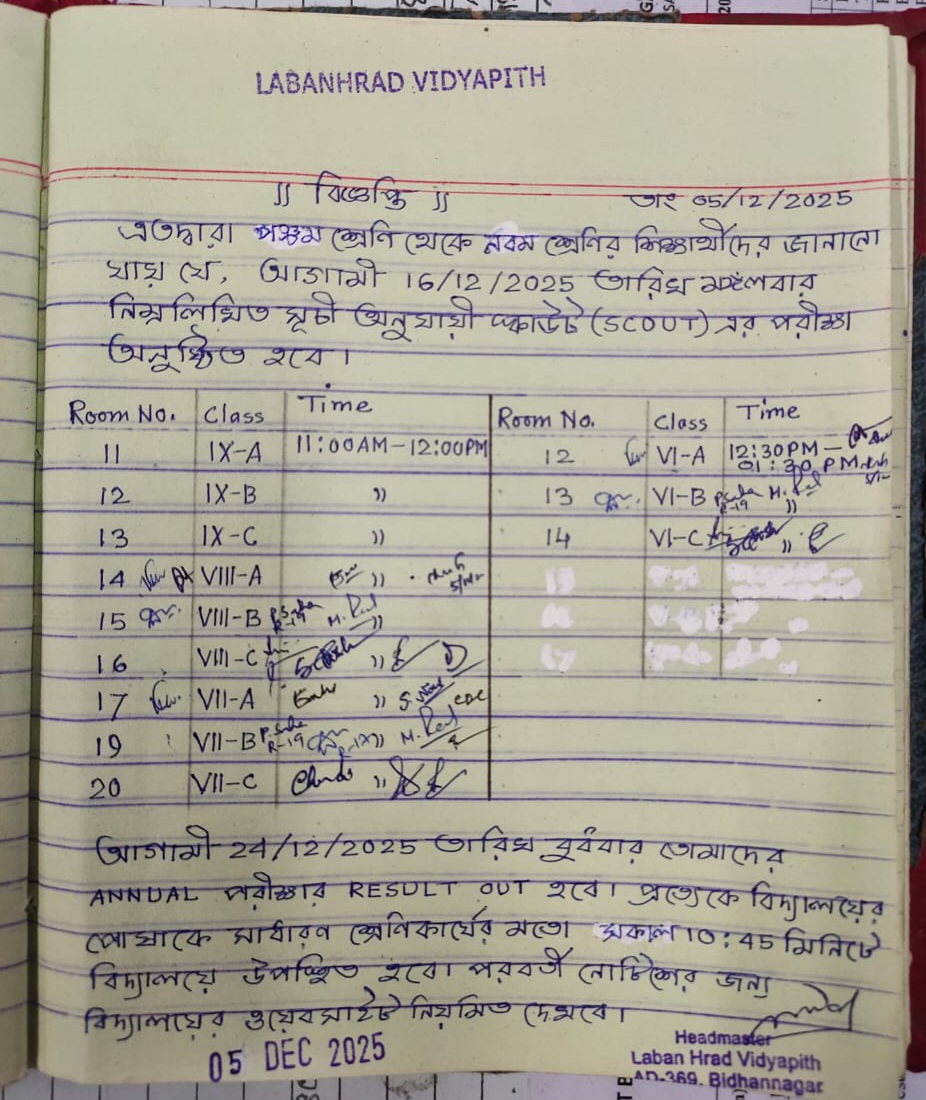 LABANHRAD VIDYAPITH
|| বিজ্ঞপ্তি || তাং 05/12/2025
এতদ্বারা পঞ্চম শ্রেণি থেকে নবম শ্রেণির শিক্ষার্থীদের জানানো
যায় যে, আগামী 16/12/2025 তারিখ মঙ্গলবার
নিম্নলিখিত সূচী অনুযায়ী স্কাউট (SCOUT) এর পরীক্ষা
অনুষ্ঠিত হবে।
Room No. Class Time Room No. Class Time
11 IX-A 11:00AM-12:00PM 12 VI-A 12:30PM- 01:30PM
12 IX-B " 13 VI-B "
13 IX-C " 14 VI-C "
14 VIII-A "
15 VIII-B "
16 VIII-C "
17 VII-A "
19 VII-B "
20 VII-C "
আগামী 24/12/2025 তারিখ বুধবার তোমাদের
ANNUAL পরীক্ষার RESULT OUT হবে। প্রত্যেকে বিদ্যালয়ের
পোষাকে সাধারণ শ্রেণিকার্যের মতো সকাল 10:45 মিনিটে
বিদ্যালয়ে উপস্থিত হবে। পরবর্তী নোটিশের জন্য
বিদ্যালয়ের ওয়েবসাইট নিয়মিত দেখবে।
05 DEC 2025
Headmaster
Laban Hrad Vidyapith
AD-369, Bidhannagar